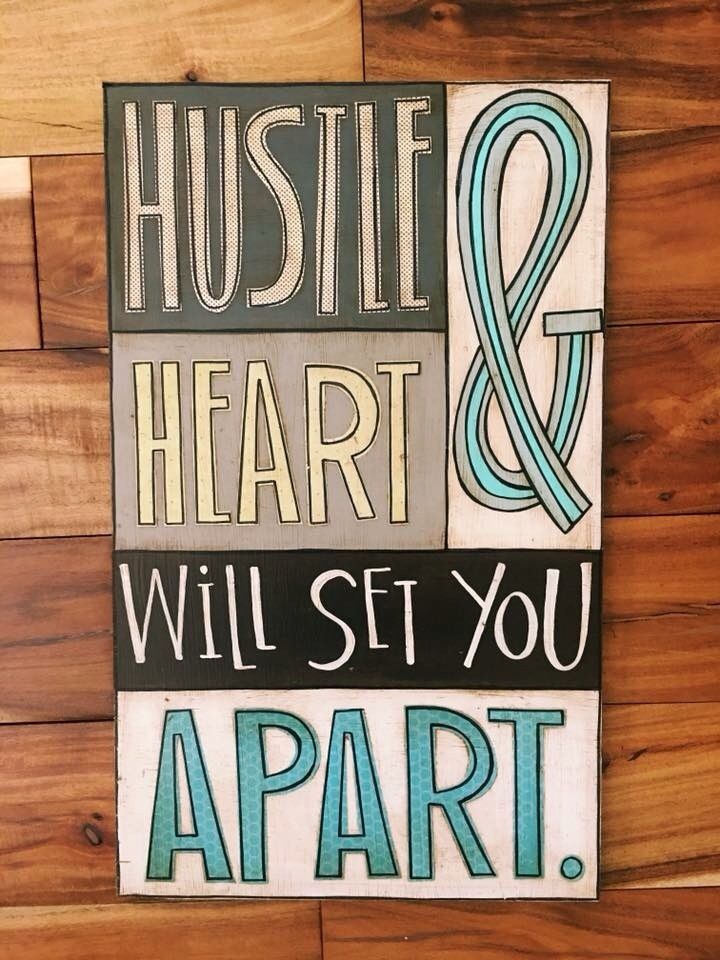 HUSTLE &
HEART
WiLL SET YOU
APART.